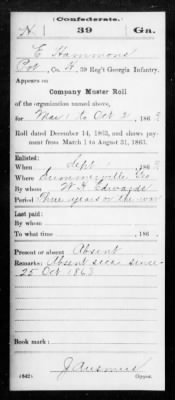 (Confederate.)
H 39 Ga.
E Hammons
Co. 39 Reg't Georgia Infantry.
Appears on
Company Muster Roll
of the organization named above,
for Mar 1 to Oct 2, 1863
Roll dated December 14, 1863, and shows pay-
ment from March 1 to August 31, 1863.
Enlisted:
When Sept 1, 186
Where Summerville Geo
By whom W. H. Edwards
Period Three years or the war
Last paid:
By whom
To what time , 186 .
Present or absent Absent
Remarks: Absent sick since
25 Oct 1863
Book mark:
(642) Copyist.